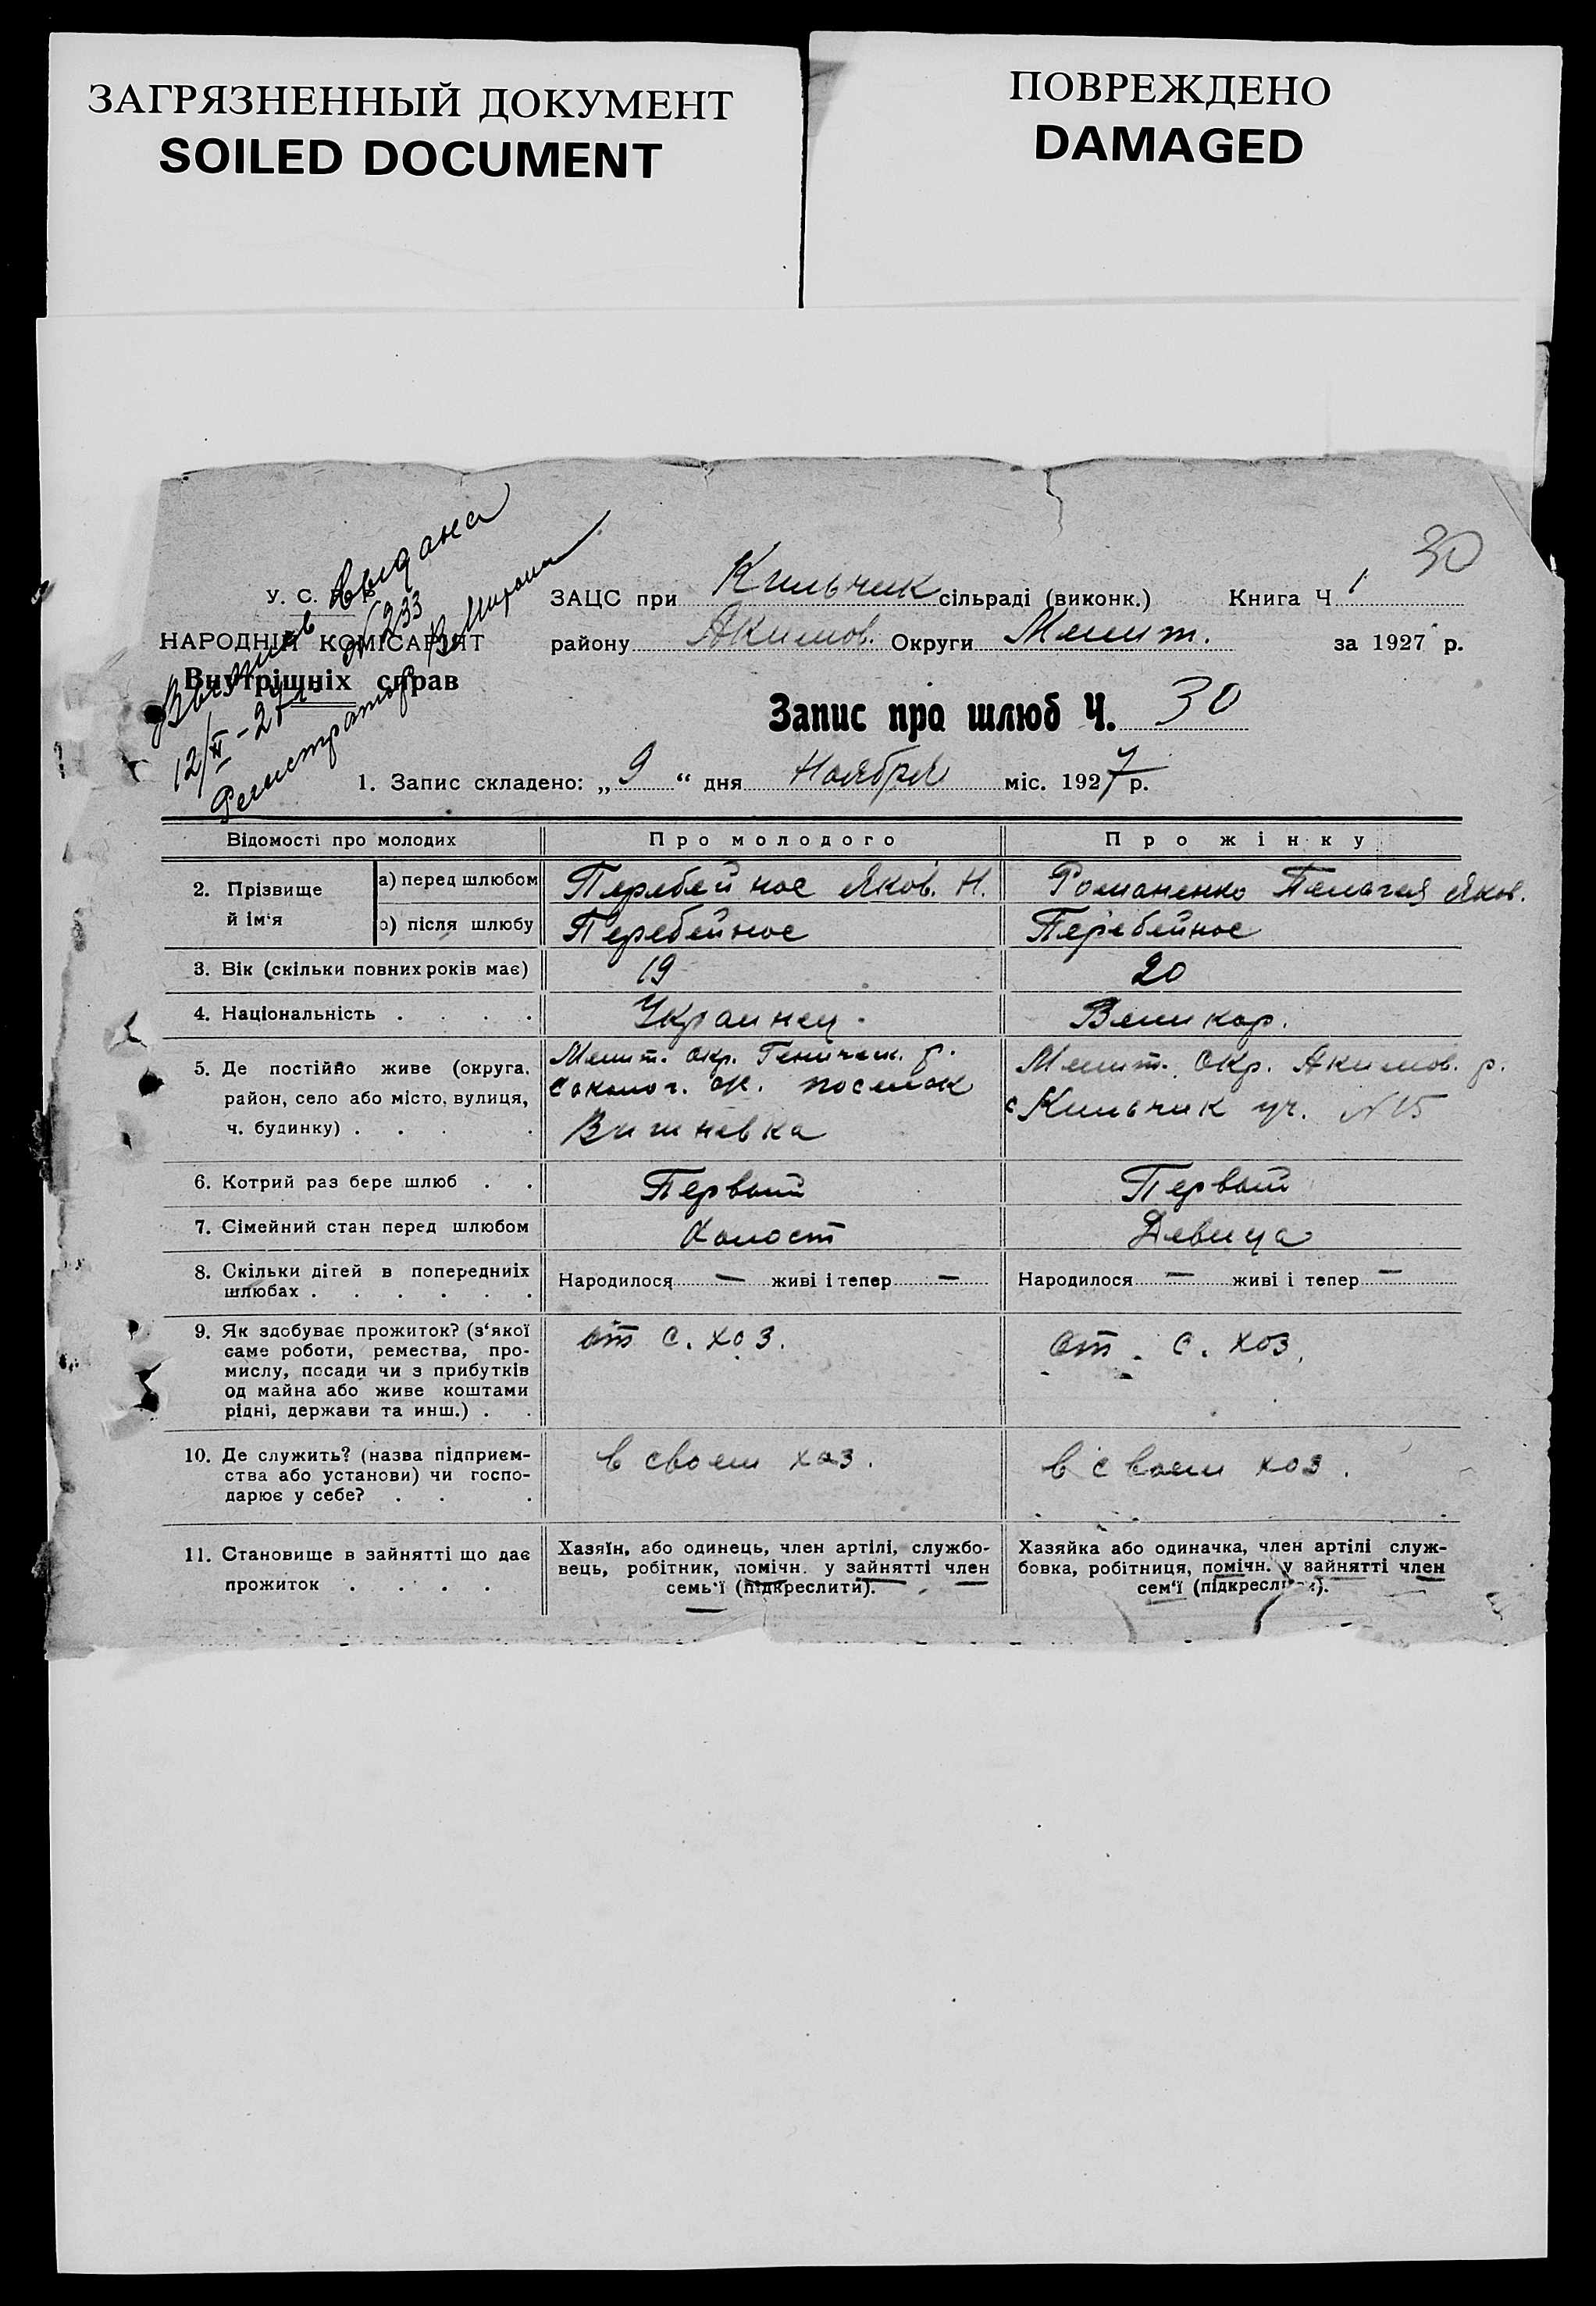 ЗАГРЯЗНЕННЫЙ ДОКУМЕНТ
SOILED DOCUMENT
ПОВРЕЖДЕНО
DAMAGED
30
выдана
№ 233
12/II - 27 г.
Регистратор
У. С.
НАРОДНІЙ КОМІСАРІЯТ
Внутрішніх справ
ЗАЦС при Кильчик сільраді (виконк.) Книга Ч 1
району Акимов. Округи Мелит. за 1927 р.
Запис про шлюб Ч. 30
1. Запис складено: „ 9 “ дня Ноября міс. 1927 р.
Відомості про молодих Про молодого Про жінку
2. Прізвище й ім‘я
а) перед шлюбом Перебейнос Яков. Н. Романенко Пелагея Яков.
б) після шлюбу Перебейнос Перебейнос
3. Вік (скільки повних років має) 19 20
4. Національність . . . . Украинец. Великор.
5. Де постійно живе (округа,
район, село або місто, вулиця,
ч. будинку) . . . .
Мелит. окр. Геническ. р.
Соколог. с/с. поселок
Вишневка
Мелит. Окр. Акимов. р.
с Кильчик уч. №15
6. Котрий раз бере шлюб . . Первый Первый
7. Сімейний стан перед шлюбом Холост Девица
8. Скільки дітей в попередниіх
шлюбах . . . . . .
Народилося — живі і тепер —
Народилося — живі і тепер —
9. Як здобуває прожиток? (з‘якої
саме роботи, ремества, про-
мислу, посади чи з прибутків
од майна або живе коштами
рідні, держави та инш.) . .
от с. хоз.
от. с. хоз.
10. Де служить? (назва підприєм-
ства або установи) чи госпо-
дарює у себе? . . .
в своем хоз.
в своем хоз.
11. Становище в зайнятті що дає
прожиток . . . .
Хазяїн, або одинець, член артілі, службо-
вець, робітник, помічн. у зайнятті член
семь‘ї (підкреслити).
Хазяйка або одиначка, член артілі служ-
бовка, робітниця, помічн. у зайнятті член
сем‘ї (підкреслити).